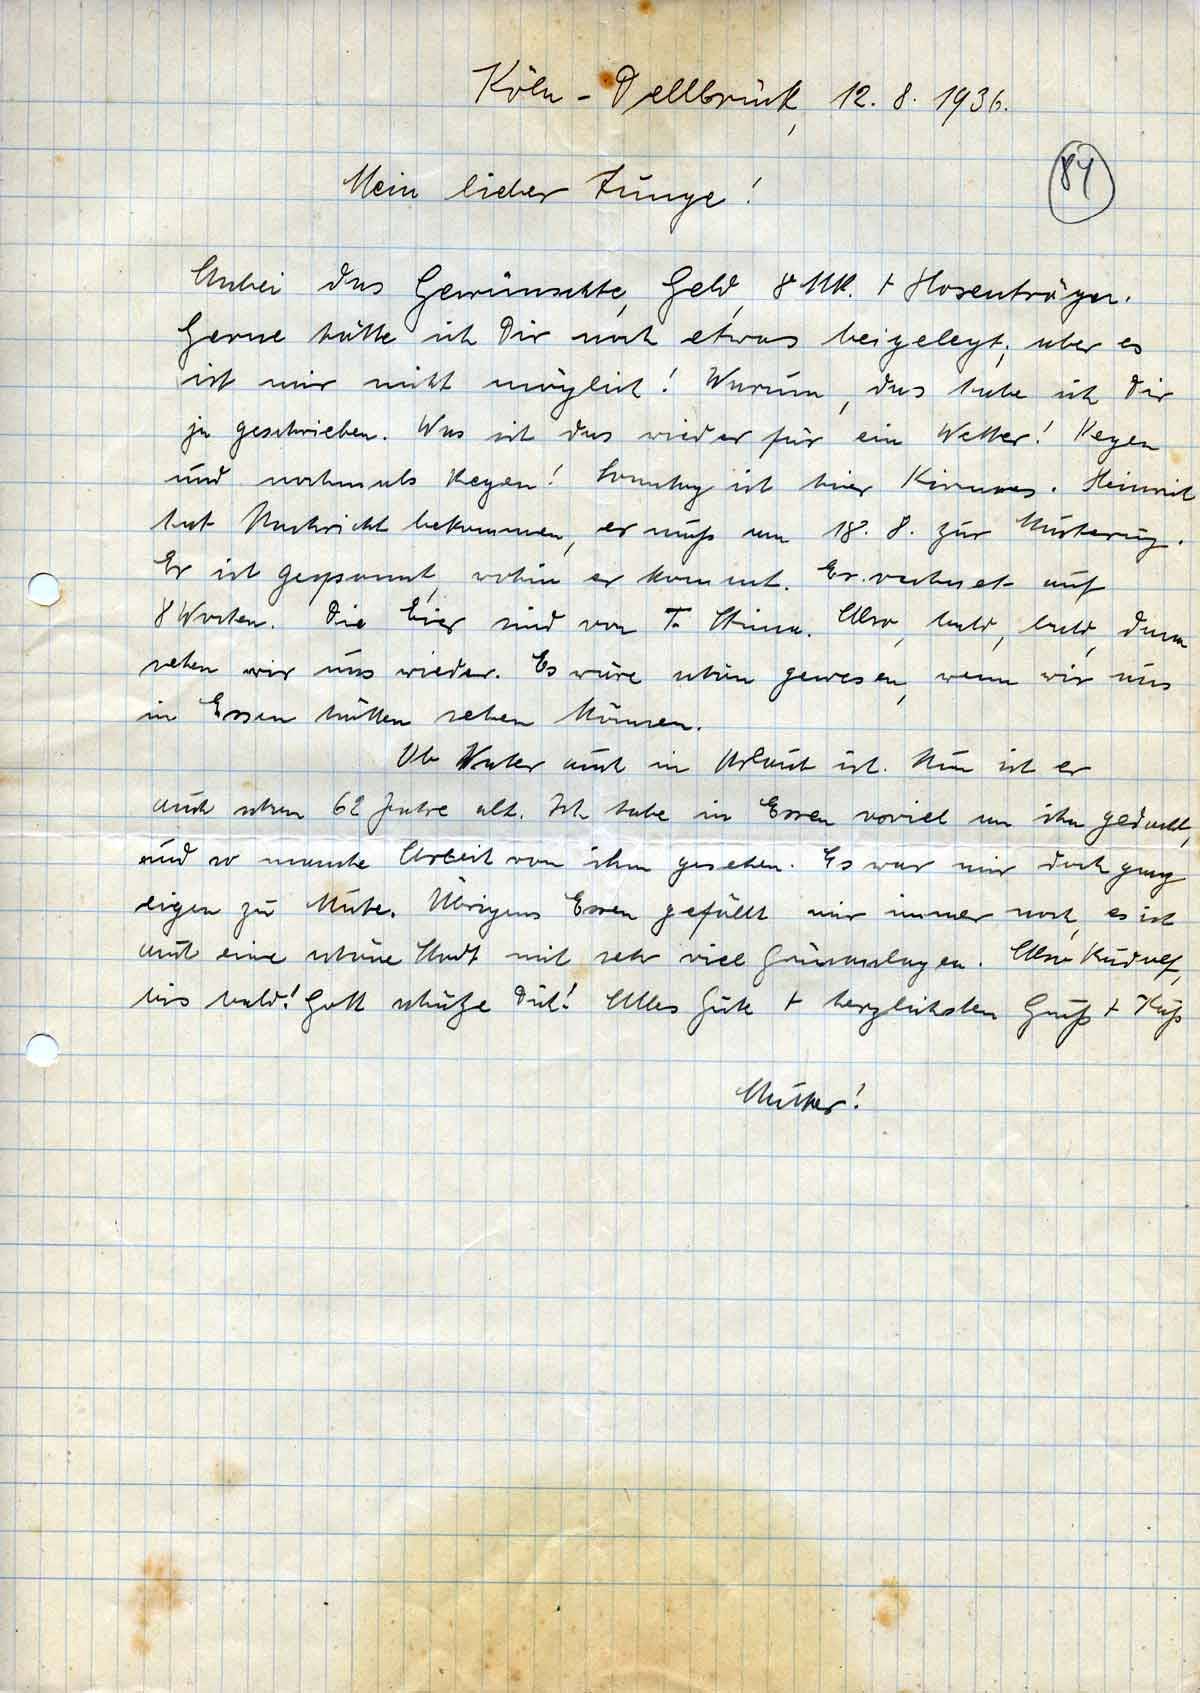 Köln-Dellbrück, 12. 8. 1936.
84
Mein lieber Junge!
Anbei das Gewünschte, Geld, 8 MK. + Hosenträger.
Gerne hätte ich Dir noch etwas beigelegt, aber es
ist mir nicht möglich! Warum, das habe ich Dir
ja geschrieben. Was ist das wieder für ein Wetter! Regen
und nochmals Regen! Sonntag ist hier Kirmes. Heinrich
hat Nachricht bekommen, er muß am 18. 8. zur Musterung.
Er ist gespannt, wohin er kommt. Er rechnet auf
8 Wochen. Die Eier sind von T. Also, bald, bald, dann
sehen wir uns wieder. Es wäre schön gewesen, wenn wir uns
in Essen hätten sehen können.
Ob Vater auch in Urlaub ist. Nun ist er
auch schon 62 Jahre alt. Ich habe in Essen soviel an ihn gedacht,
und so manche Arbeit von ihm gesehen. Es war mir doch ganz
eigen zu Mute. Übrigens Essen gefällt mir immer noch, es ist
auch eine schöne Stadt mit sehr viel Grünanlagen. Also Rudolf,
bis bald! Gott schütze Dich! Alles Gute + herzlichsten Gruß + Kuß
Mutter!